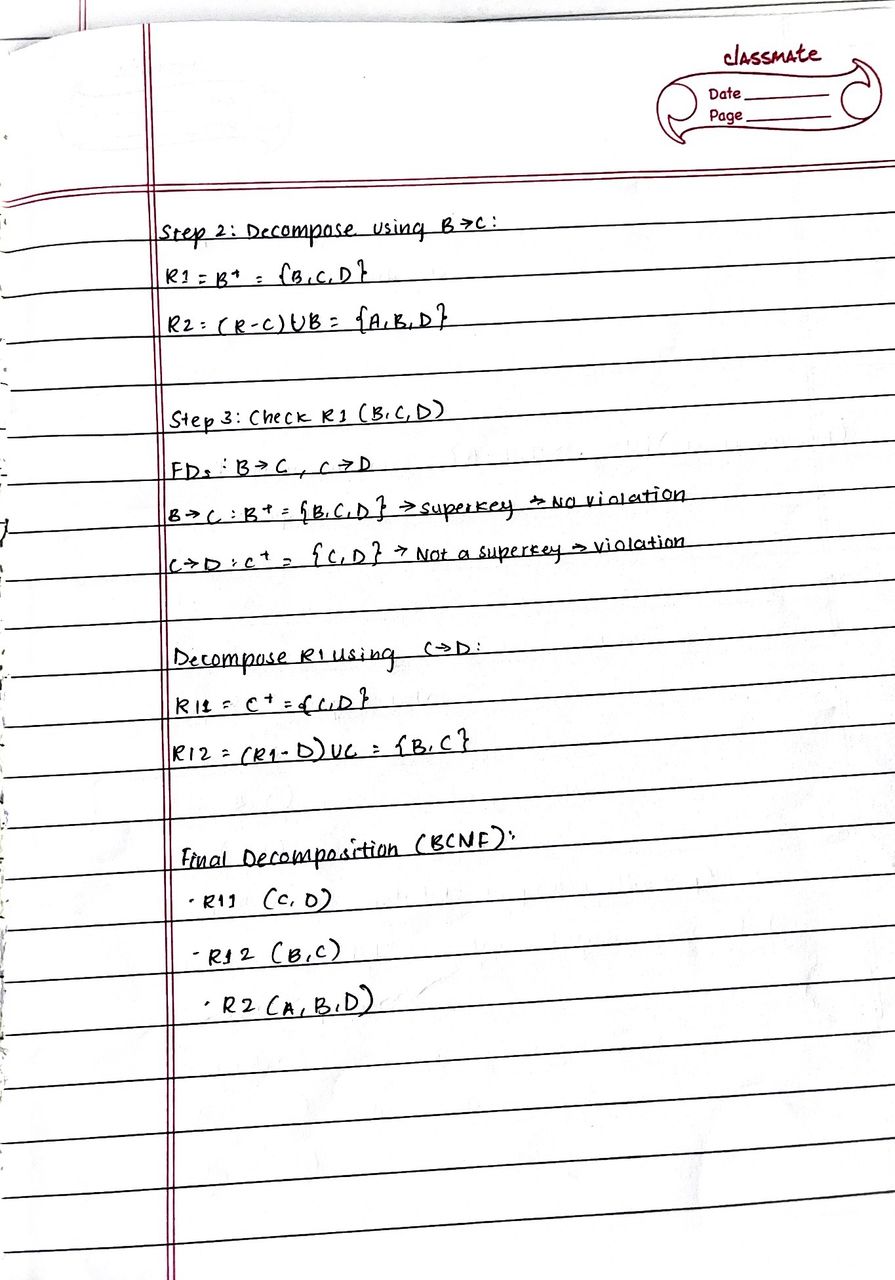 classmate
Date
Page
Step 2: Decompose using B→C:
R1 = B⁺ = {B,C,D}
R2 = (R-C)UB = {A,B,D}
Step 3: Check R1 (B,C,D)
FDs : B→C, C→D
B→C : B⁺ = {B,C,D} → superkey → No violation
C→D : C⁺ = {C,D} → Not a superkey → violation
Decompose R1 using C→D:
R11 = C⁺ = {C,D}
R12 = (R1-D)UC = {B,C}
Final Decomposition (BCNF):
· R11 (C,D)
· R12 (B,C)
· R2 (A,B,D)